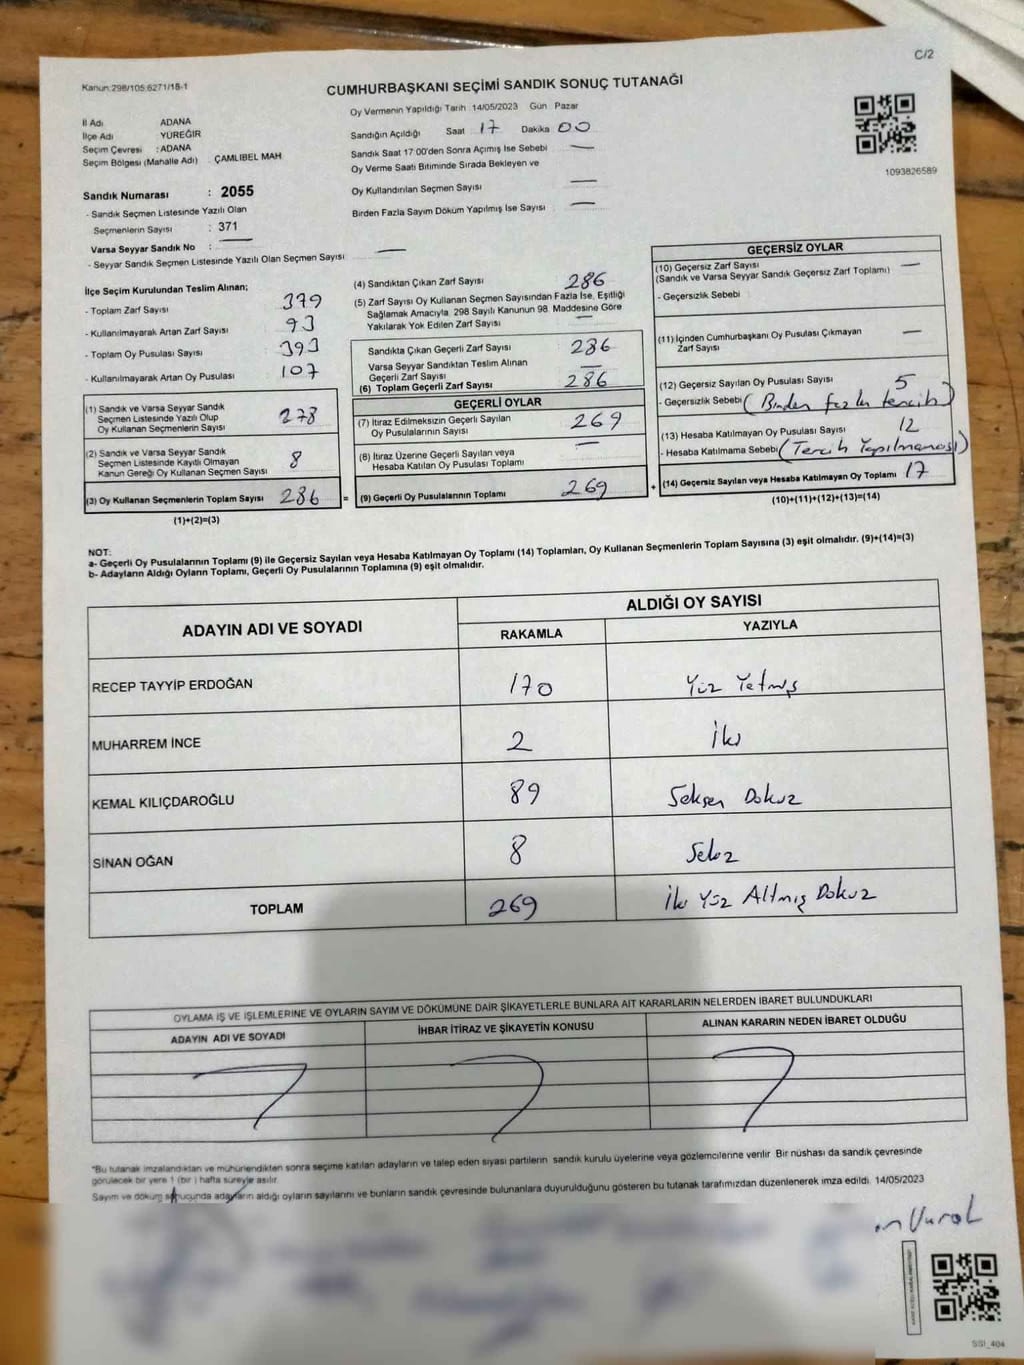 C/2
Kanun:298/105.6271/18-1
CUMHURBAŞKANI SEÇİMİ SANDIK SONUÇ TUTANAĞI
İl Adı ADANA
İlçe Adı YÜREĞİR
Seçim Çevresi : ADANA
Seçim Bölgesi (Mahalle Adı) ÇAMLIBEL MAH
Sandık Numarası : 2055
- Sandık Seçmen Listesinde Yazılı Olan
Seçmenlerin Sayısı : 371
Varsa Seyyar Sandık No : —
- Seyyar Sandık Seçmen Listesinde Yazılı Olan Seçmen Sayısı —
Oy Vermenin Yapıldığı Tarih 14/05/2023 Gün Pazar
Sandığın Açıldığı Saat 17 Dakika 00
Sandık Saat 17:00'den Sonra Açımış İse Sebebi —
Oy Verme Saati Bitiminde Sırada Bekleyen ve
Oy Kullandırılan Seçmen Sayısı —
Birden Fazla Sayım Döküm Yapılmış İse Sayısı —
1093826589
İlçe Seçim Kurulundan Teslim Alınan;
- Toplam Zarf Sayısı 379
- Kullanılmayarak Artan Zarf Sayısı 93
- Toplam Oy Pusulası Sayısı 393
- Kullanılmayarak Artan Oy Pusulası 107
(1) Sandık ve Varsa Seyyar Sandık
Seçmen Listesinde Yazılı Olup
Oy Kullanan Seçmenlerin Sayısı 278
(2) Sandık ve Varsa Seyyar Sandık
Seçmen Listesinde Kayıtlı Olmayan
Kanun Gereği Oy Kullanan Seçmen Sayısı 8
(3) Oy Kullanan Seçmenlerin Toplam Sayısı 286 =
(1)+(2)=(3)
(4) Sandıktan Çıkan Zarf Sayısı 286
(5) Zarf Sayısı Oy Kullanan Seçmen Sayısından Fazla İse, Eşitliği
Sağlamak Amacıyla, 298 Sayılı Kanunun 98. Maddesine Göre
Yakılarak Yok Edilen Zarf Sayısı —
Sandıkta Çıkan Geçerli Zarf Sayısı 286
Varsa Seyyar Sandıktan Teslim Alınan
Geçerli Zarf Sayısı —
(6) Toplam Geçerli Zarf Sayısı 286
GEÇERLİ OYLAR
(7) İtiraz Edilmeksizin Geçerli Sayılan
Oy Pusulalarının Sayısı 269
(8) İtiraz Üzerine Geçerli Sayılan veya
Hesaba Katılan Oy Pusulası Toplamı —
(9) Geçerli Oy Pusulalarının Toplamı 269 +
GEÇERSİZ OYLAR
(10) Geçersiz Zarf Sayısı —
(Sandık ve Varsa Seyyar Sandık Geçersiz Zarf Toplamı)
- Geçersizlik Sebebi
(11) İçinden Cumhurbaşkanı Oy Pusulası Çıkmayan
Zarf Sayısı —
(12) Geçersiz Sayılan Oy Pusulası Sayısı 5
- Geçersizlik Sebebi (Birden fazla tercih)
(13) Hesaba Katılmayan Oy Pusulası Sayısı 12
- Hesaba Katılmama Sebebi (Tercih Yapılmaması)
(14) Geçersiz Sayılan veya Hesaba Katılmayan Oy Toplamı 17
(10)+(11)+(12)+(13)=(14)
NOT:
a- Geçerli Oy Pusulalarının Toplamı (9) ile Geçersiz Sayılan veya Hesaba Katılmayan Oy Toplamı (14) Toplamları, Oy Kullanan Seçmenlerin Toplam Sayısına (3) eşit olmalıdır. (9)+(14)=(3)
b- Adayların Aldığı Oyların Toplamı, Geçerli Oy Pusulalarının Toplamına (9) eşit olmalıdır.
ADAYIN ADI VE SOYADI ALDIĞI OY SAYISI
RAKAMLA YAZIYLA
RECEP TAYYİP ERDOĞAN 170 Yüz Yetmiş
MUHARREM İNCE 2 İki
KEMAL KILIÇDAROĞLU 89 Seksen Dokuz
SİNAN OĞAN 8 Sekiz
TOPLAM 269 İki Yüz Altmış Dokuz
OYLAMA İŞ VE İŞLEMLERİNE VE OYLARIN SAYIM VE DÖKÜMÜNE DAİR ŞİKAYETLERLE BUNLARA AİT KARARLARIN NELERDEN İBARET BULUNDUKLARI
ADAYIN ADI VE SOYADI İHBAR İTİRAZ VE ŞİKAYETİN KONUSU ALINAN KARARIN NEDEN İBARET OLDUĞU
"Bu tutanak imzalandıktan ve mühürlendikten sonra seçime katılan adayların ve talep eden siyasi partilerin sandık kurulu üyelerine veya gözlemcilerine verilir. Bir nüshası da sandık çevresinde
görülecek bir yere 1 (bir) hafta süreyle asılır.
Sayım ve döküm sonucunda adayların aldığı oyların sayılarını ve bunların sandık çevresinde bulunanlara duyurulduğunu gösteren bu tutanak tarafımızdan düzenlenerek imza edildi. 14/05/2023
Vural
SSI_404